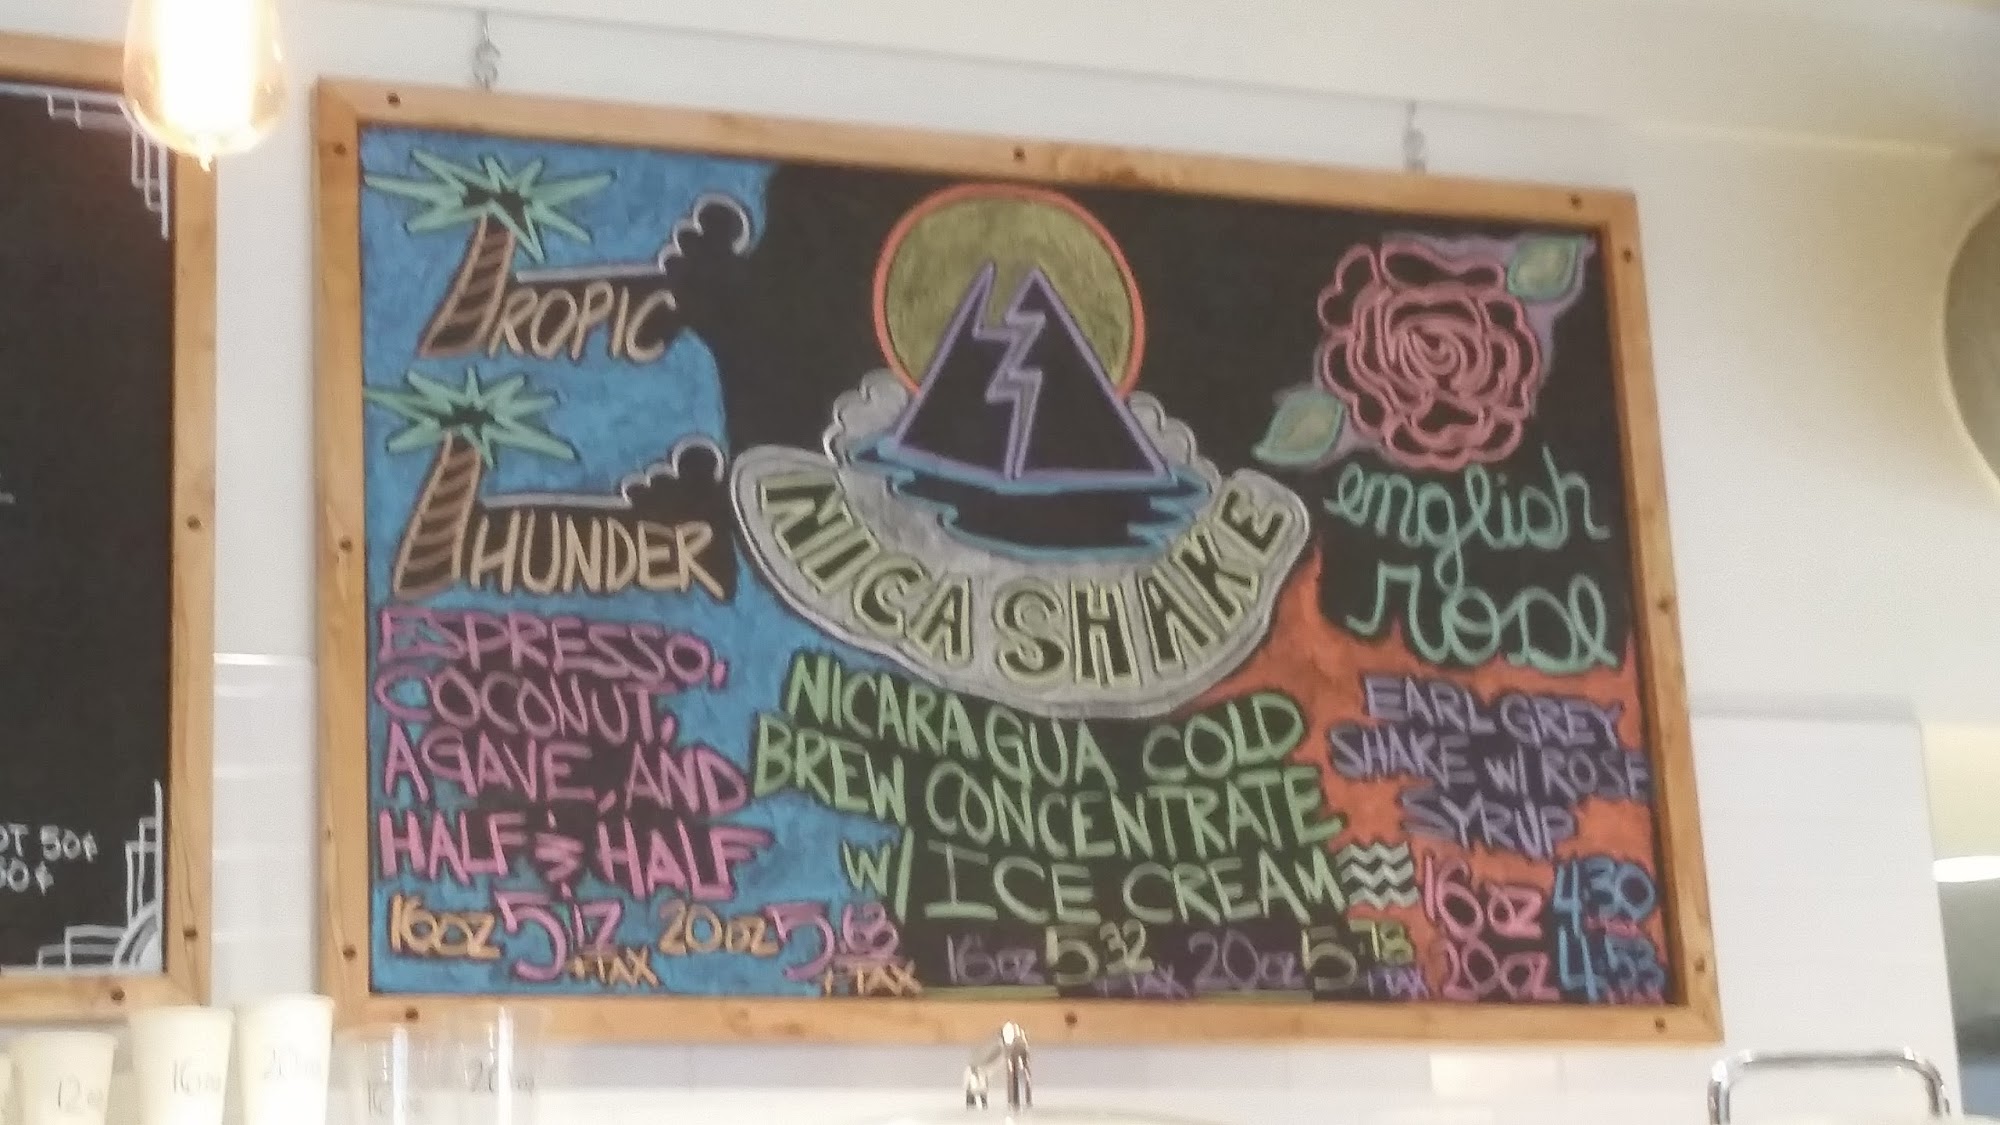 TROPIC
THUNDER
ESPRESSO,
COCONUT,
AGAVE, AND
HALF & HALF
16OZ 5.17 20OZ 5.63
+TAX +TAX
NICA SHAKE
NICARAGUA COLD
BREW CONCENTRATE
W/ ICE CREAM
16OZ 5.32 20OZ 5.78
+TAX +TAX
english
rose
EARL GREY
SHAKE W/ ROSE
SYRUP
16OZ 4.30
20OZ 4.53
50¢
50¢
12oz
16oz
20oz